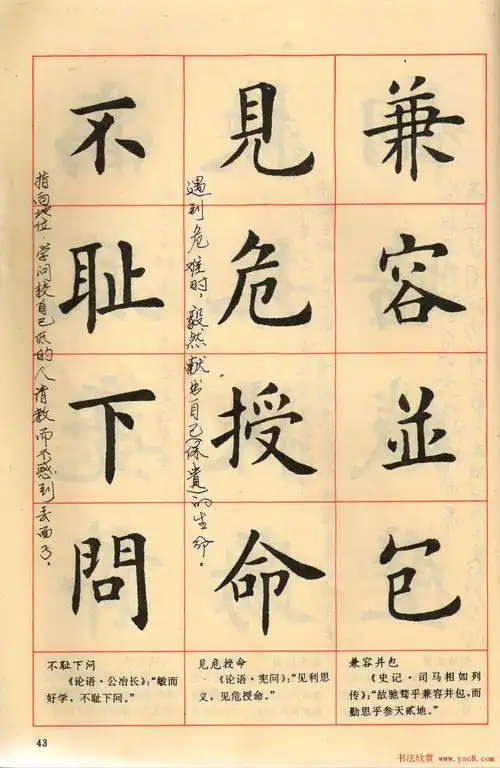 兼容並包
見危授命
遇到危难时，毅然献出自己(保贵)的生命。
不耻下問
指向地位、学问较自己低的人请教而不感到丢面子。
不耻下问
《论语·公冶长》：“敏而
好学，不耻下问。”
见危授命
《论语·宪问》：“见利思
义，见危授命。”
兼容并包
《史记·司马相如列
传》：“故驰骛乎兼容并包，而
勤思乎参天贰地。”
43
书法欣赏 www.yac8.com